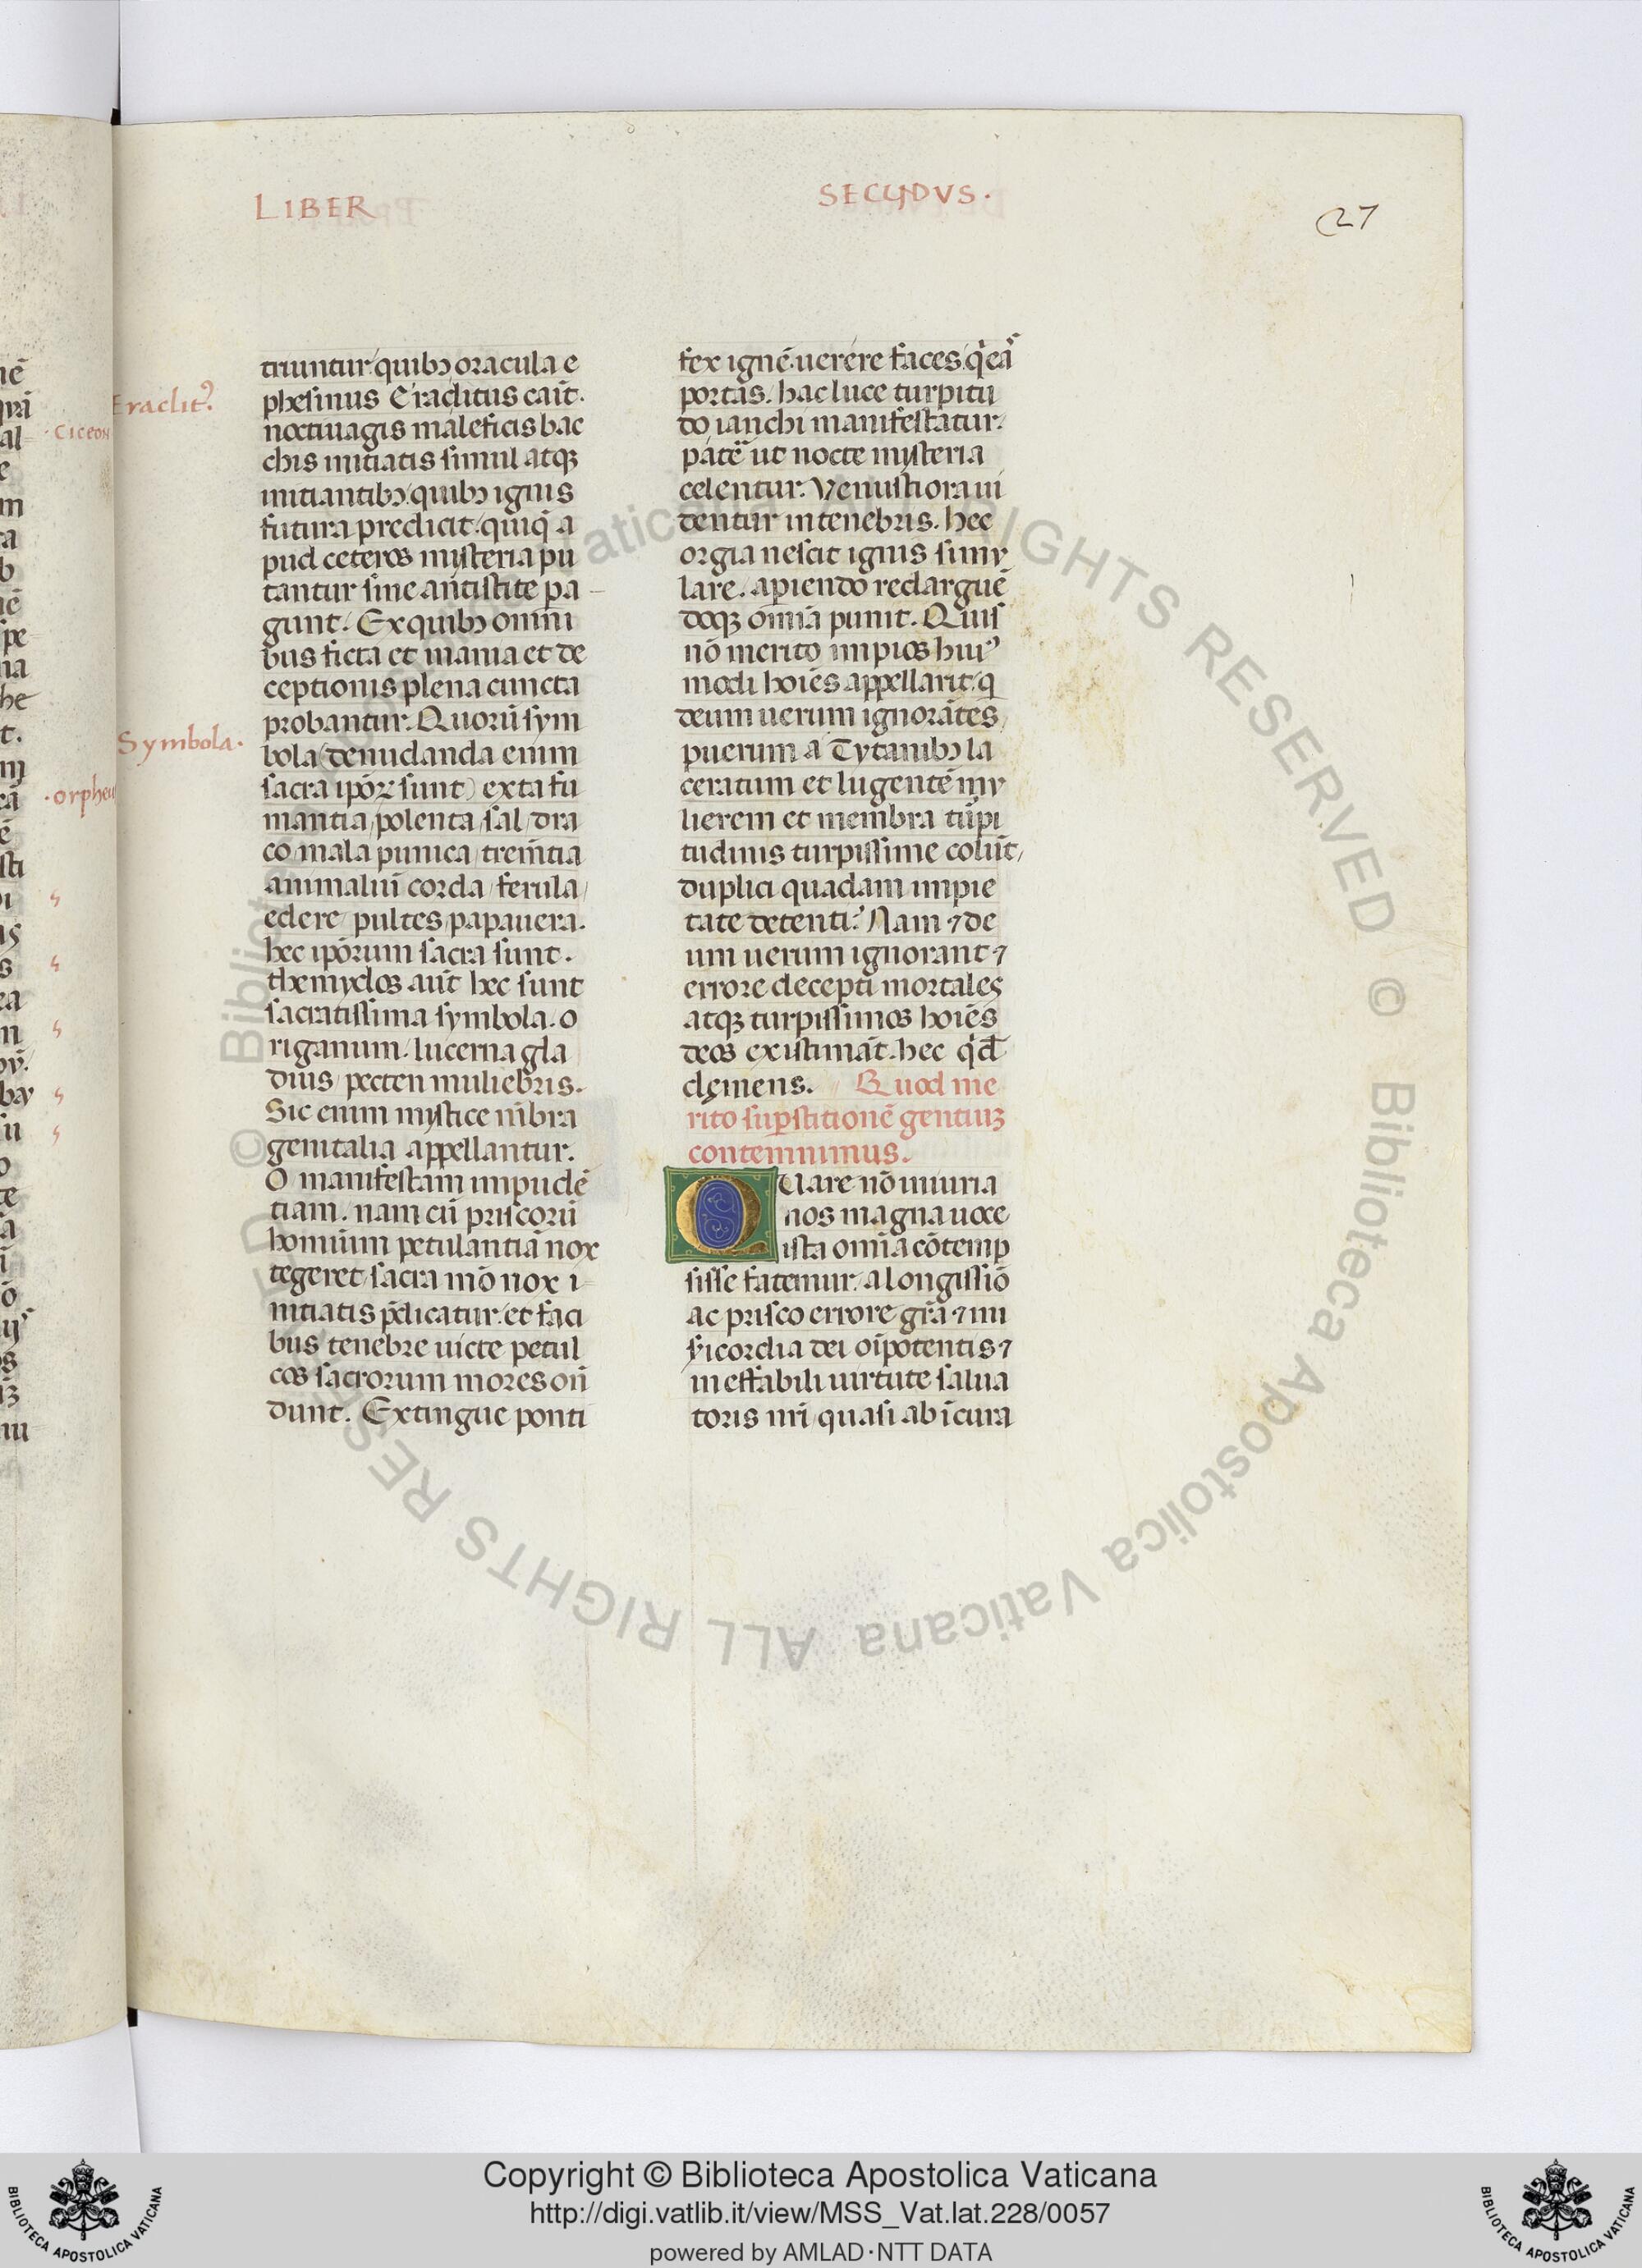 LIBER
SECUNDVS.
27
Eraclit⁹.
Symbola.
ciceon
.orpheu
triuntur/quibꝫ oracula e
phesinus Eraclitus cait̄.
noctiuagis maleficis bac
chis initiatis simul atqꝫ
initiantibꝫ/quibꝫ ignis
futura predicit/quiq̄ a
pud ceteros mysteria pu
tantur sine antistite pa-
gunt. Ex quibꝫ omni
bus ficta et inania et de
ceptionis plena cuncta
probantur. Quorū sym
bola (denudanda enim
sacra ip̄oꝝ sunt) exta fu
mantia/polenta/sal/dra
co/mala punica/trem̄tia
animaliū corda/ferula/
edere/pultes/papauera.
hec ip̄orum sacra sunt.
themydos aūt hec sunt
sacratissima symbola. o
riganum. lucerna/gla
dius/pecten muliebris.
Sic enim mystice m̄bra
genitalia appellantur.
O manifestam impudē
tiam. nam cū priscorū
hominum petulantiā nox
tegeret/sacra mō nox i-
nitiatis p̄dicatur/et faci
bus tenebre uicte petul
cos sacrorum mores on̄
dunt. Extingue ponti
fex ignē/uerere faces/q̄ eā
portas. hac luce turpitu
do ianchi manifestatur.
patēr ut nocte mysteria
celentur. Venustiora ui
dentur in tenebris. hec
orgia nescit ignis simy
lare. apiendo redarguē
doqꝫ omīa punit. Quis
nō merito impios hui⁹
modi hoīes appellarit/q
deum uerum ignorātes,
puerum a Tytanibꝫ la
ceratum et lugentē my
lierem et membra tūpi
tudinis turpissime colūt,
duplici quadam impie
tate detenti? Nam ⁊ de
um uerum ignorant ⁊
errore decepti mortales
atqꝫ turpissimos hoīes
deos existimāt. hec qͥdē
clemens. Quod me
rito suꝑstitionē gentiuꝫ
contemnimus.
QUare nō iniuria
nos magna uoce
ista omīa cōtemp
sisse fatemur/a longissīo
ac prisco errore gr̄a ⁊ mi
sẏicordia dei oīpotentis ⁊
ineffabili uirtute salua
toris nr̄i/quasi ab īcura
© Biblioteca Apostolica Vaticana ALL RIGHTS RESERVED © Biblioteca Apostolica Vaticana ALL RIGHTS RESERVED
Copyright © Biblioteca Apostolica Vaticana
http://digi.vatlib.it/view/MSS_Vat.lat.228/0057
powered by AMLAD·NTT DATA
BIBLIOTECA APOSTOLICA VATICANA
BIBLIOTECA APOSTOLICA VATICANA